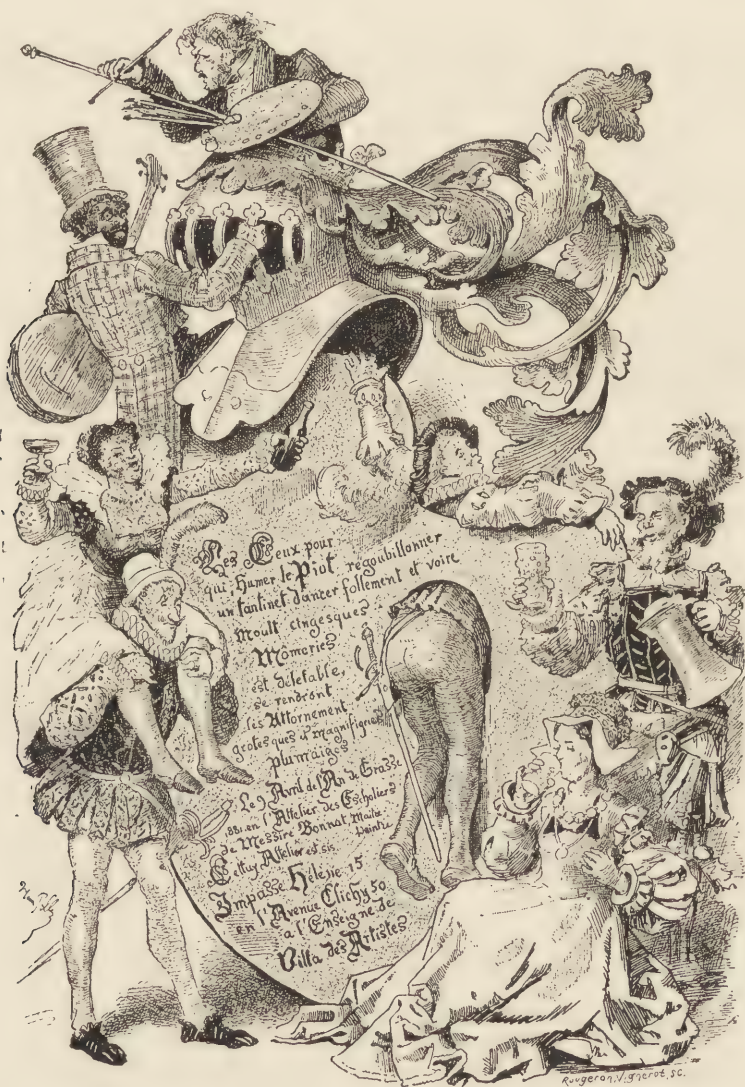 Les Ceux pour
qui, Humer le Piot, regoubillonner
un tantinet dancer follement et voire
Moult cingesques
Mômeries
est délectable,
se rendront
lès Attornement
grotesques & magnifiques
plumaiges
Le 9 Avril de l'An de Grasse
881 en l'Attelier des Escholiers
de Messire Bonnat, Maître
Peintre
Cettuy Attelier est sis,
Impasse Hélésie, 15
en l'Avenue Clichy 50
a l'Enseigne de
Villa des Artistes
Rougeron, Vignerot, SC.